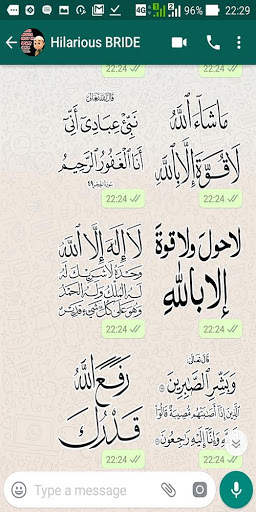 96% 22:29
Hilarious BRIDE
22:24 22:24
قال الله تعالى
نَبِّئْ عِبَادِي أَنِّي
أَنَا الْغَفُورُ الرَّحِيمُ
22:24
مَا شَاءَ اللَّهُ
لَا قُوَّةَ إِلَّا بِاللَّهِ
22:24
لَا إِلَٰهَ إِلَّا اللَّهُ
وَحْدَهُ لَا شَرِيكَ لَهُ
لَهُ الْمُلْكُ وَلَهُ الْحَمْدُ
وَهُوَ عَلَىٰ كُلِّ شَيْءٍ قَدِيرٌ
22:24
لاحول ولا قوة
إلا بالله
22:24
رَفَعَ اللَّهُ
قَدْرَكَ
22:24
قال تعالى
وَبَشِّرِ الصَّابِرِينَ
الَّذِينَ إِذَا أَصَابَتْهُم مُّصِيبَةٌ قَالُوا
وَإِنَّا إِلَيْهِ رَاجِعُونَ
22:24
Type a message